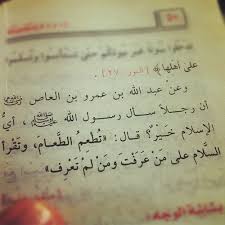 تدخلوا بيوتا غير بيوتكم حتى تستأنسوا وتسلموا
على أهلها﴾ [النور ٢٧].
وعن عبد الله بن عمرو بن العاص ﷺ
أن رجلاً سأل رسول الله ﷺ، أيُّ
الإسلام خيرٌ؟ قال: «تُطعِمُ الطَّعامَ، وتَقْرأ
السَّلام على مَنْ عَرَفْتَ وَمَنْ لَمْ تَعْرِف»
بشاشة الوجه: